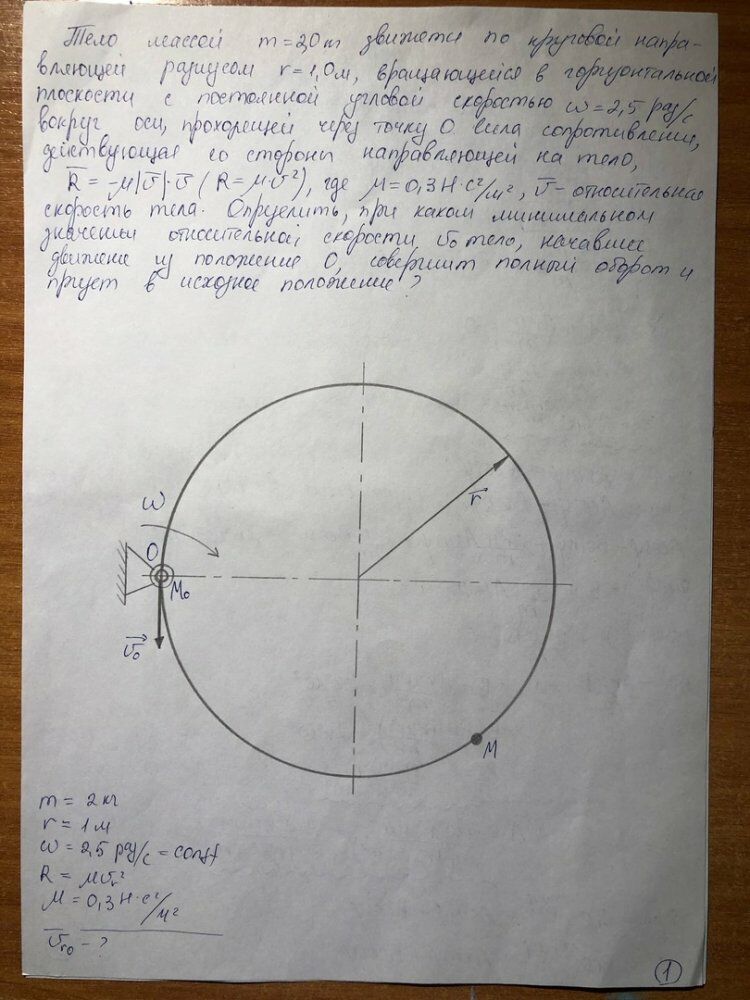 Тело массой m=2,0кг движется по круговой направ-
вляющей радиусом r=1,0м, вращающейся в горизонтальной
плоскости с постоянной угловой скоростью ω=2,5 рад/с
вокруг оси, проходящей через точку O. Сила сопротивления,
действующая со стороны направляющей на тело,
R̅ = -μ|v̅|·v̅ (R=μ·v²), где μ=0,3 Н·с²/м², v̅ - относительная
скорость тела. Определить, при каком минимальном
значении относительной скорости v₀ тело, начавшее
движение из положения O, совершит полный оборот и
придет в исходное положение?
ω
r⃗
O
M₀
v⃗₀
M
m = 2 кг
r = 1 м
ω = 2,5 рад/с = const
R = μvᵣ²
μ = 0,3 Н·с²/м²
v̅ᵣ₀ - ?
1